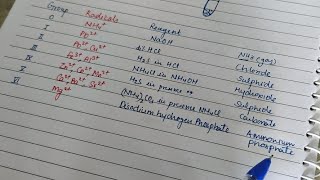 Group Radicals Reagent
0 NH₄⁺ NaOH NH₃ (gas)
I Pb²⁺ dil HCl Chloride
II Pb²⁺ Cu²⁺ H₂S in HCl Sulphide
III Fe³⁺ Al³⁺ NH₄Cl in NH₄OH Hydroxide
H₂S in presence Sulphide
Ba²⁺ Sr²⁺ (NH₄)₂CO₃ in presence NH₄Cl Carbonate
VI Mg²⁺ Disodium hydrogen Phosphate Ammonium
phosphate